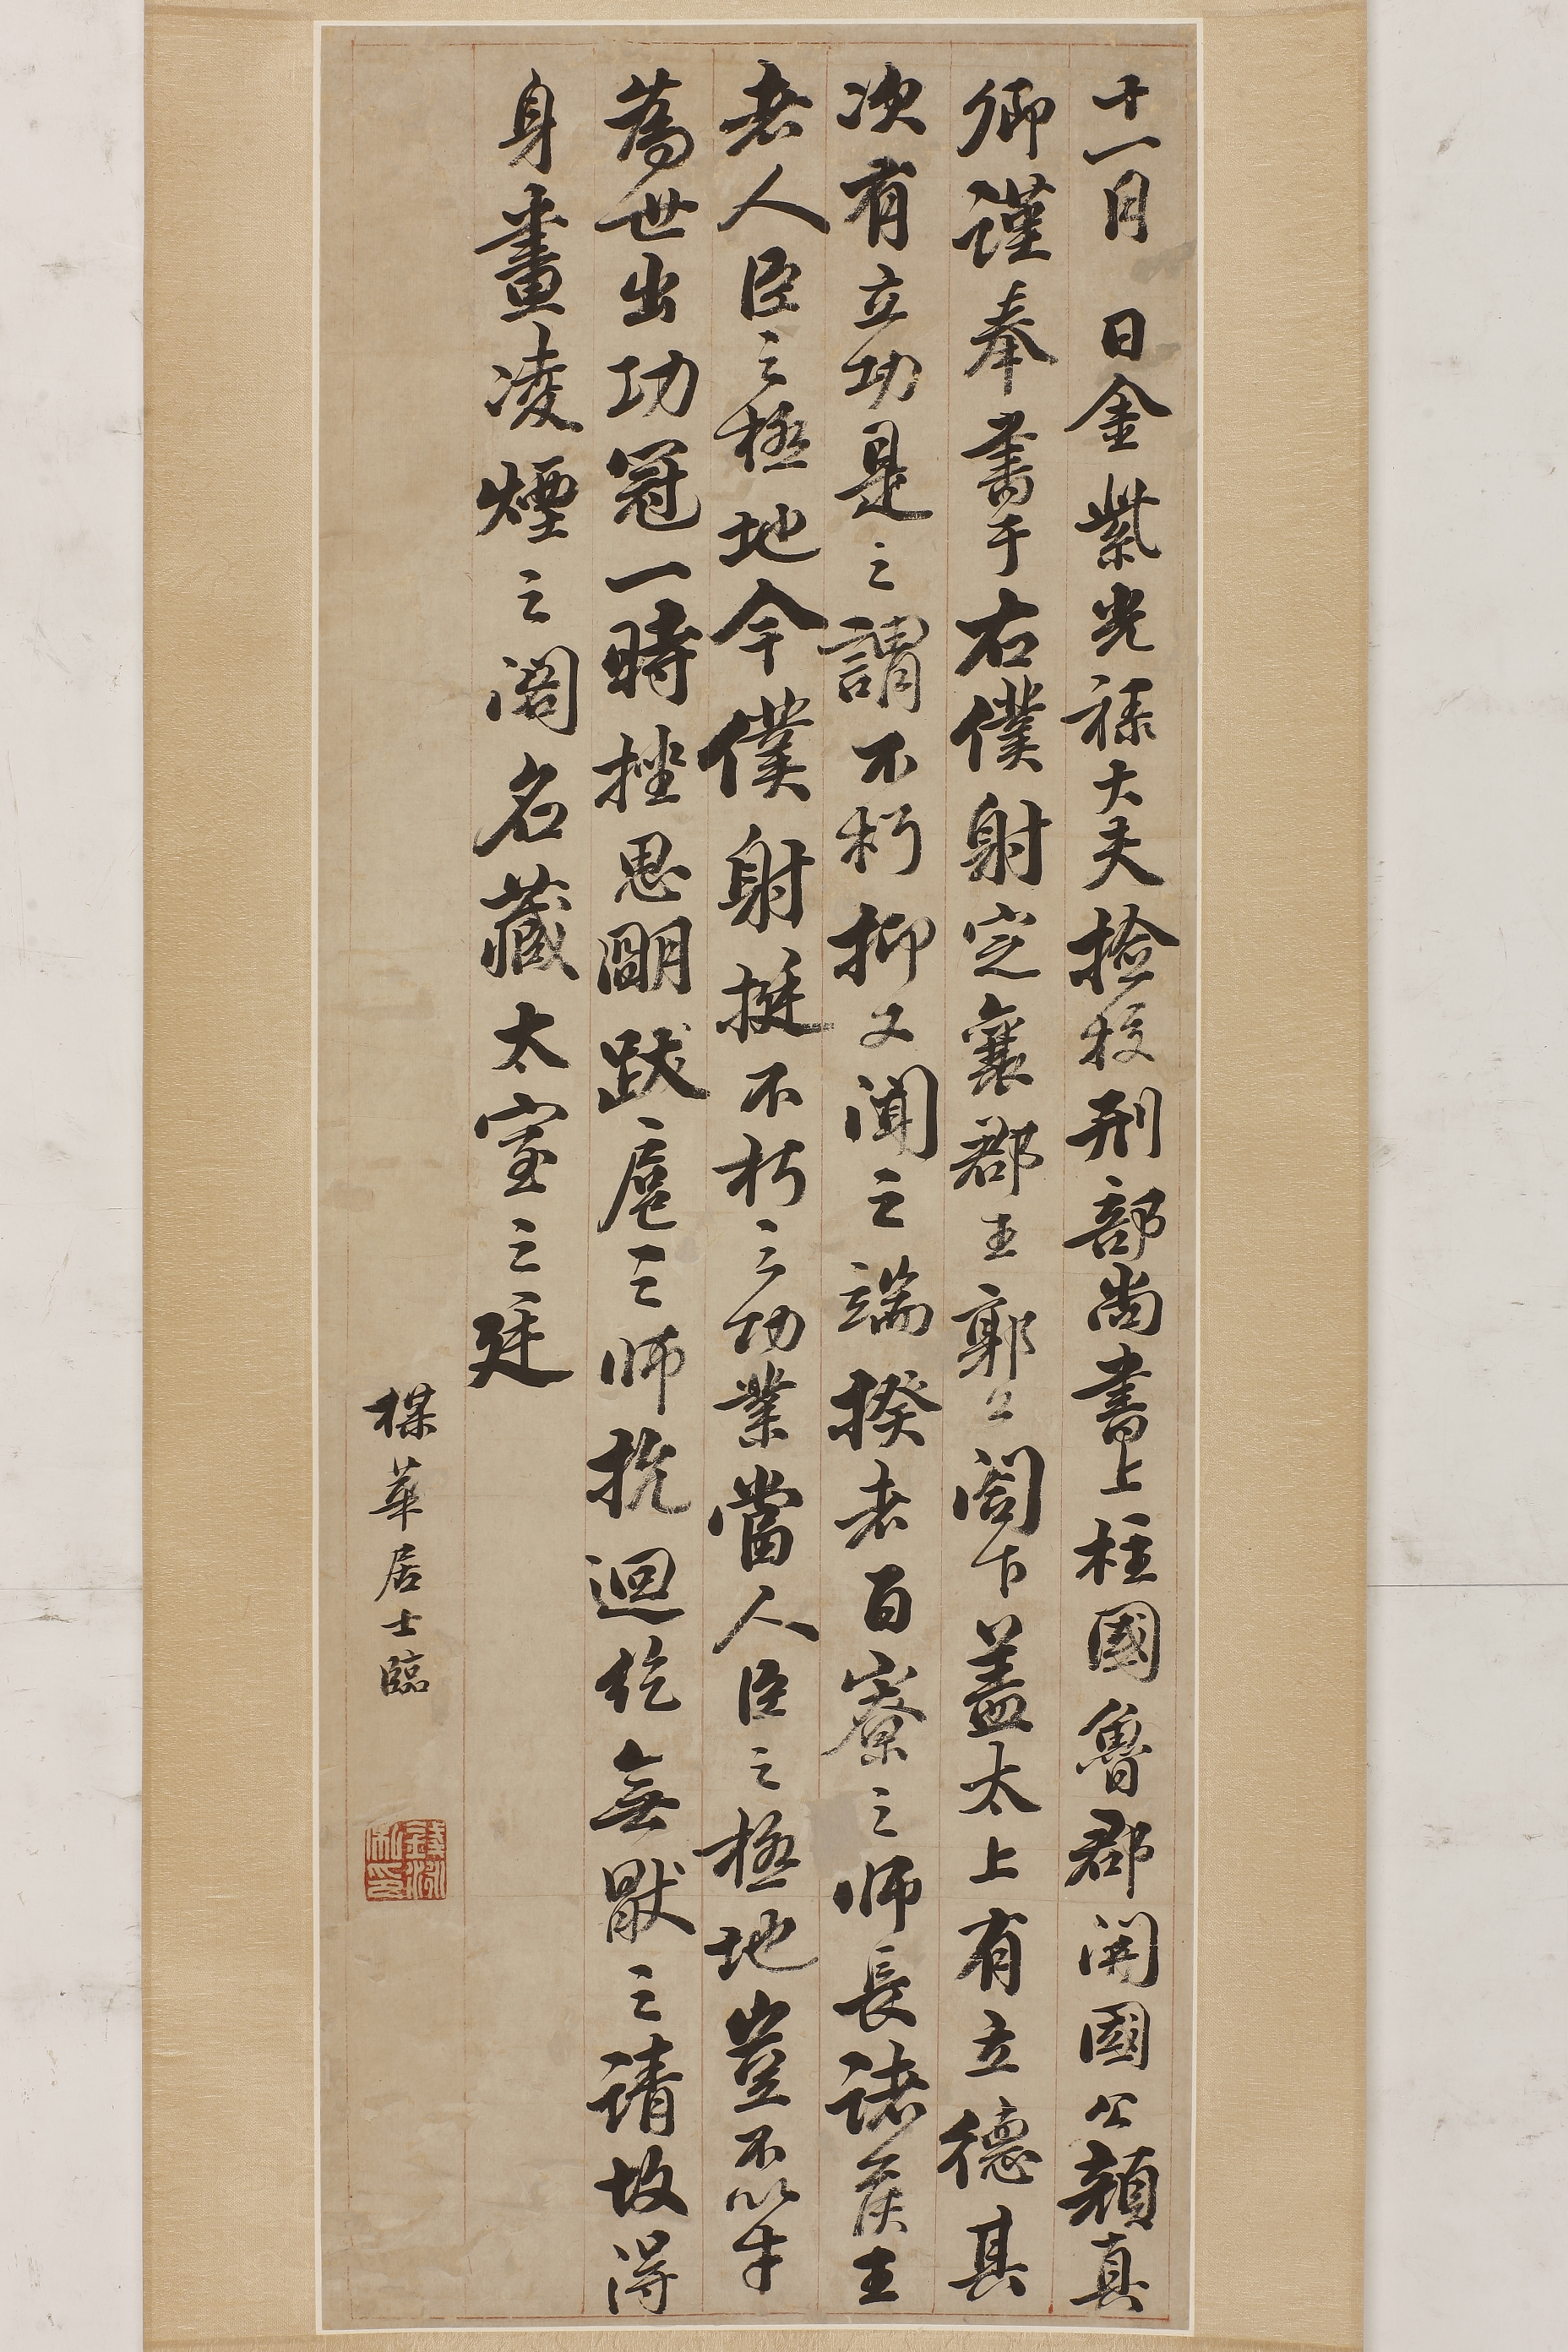 十一月　日金紫光祿大夫撿挍刑部尚書上柱國魯郡開國公顏真
卿謹奉書于右僕射定襄郡王郭公閤下蓋太上有立德其
次有立功是之謂不朽抑又聞之端揆者百寮之師長諸侯王
者人臣之極地今僕射挺不朽之功業當人臣之極地豈不以才
為世出功冠一時挫思明跋扈之師抗迴紇無猒之請故得
身畫凌煙之閣名藏太室之廷
楳華居士臨
錢泳私印